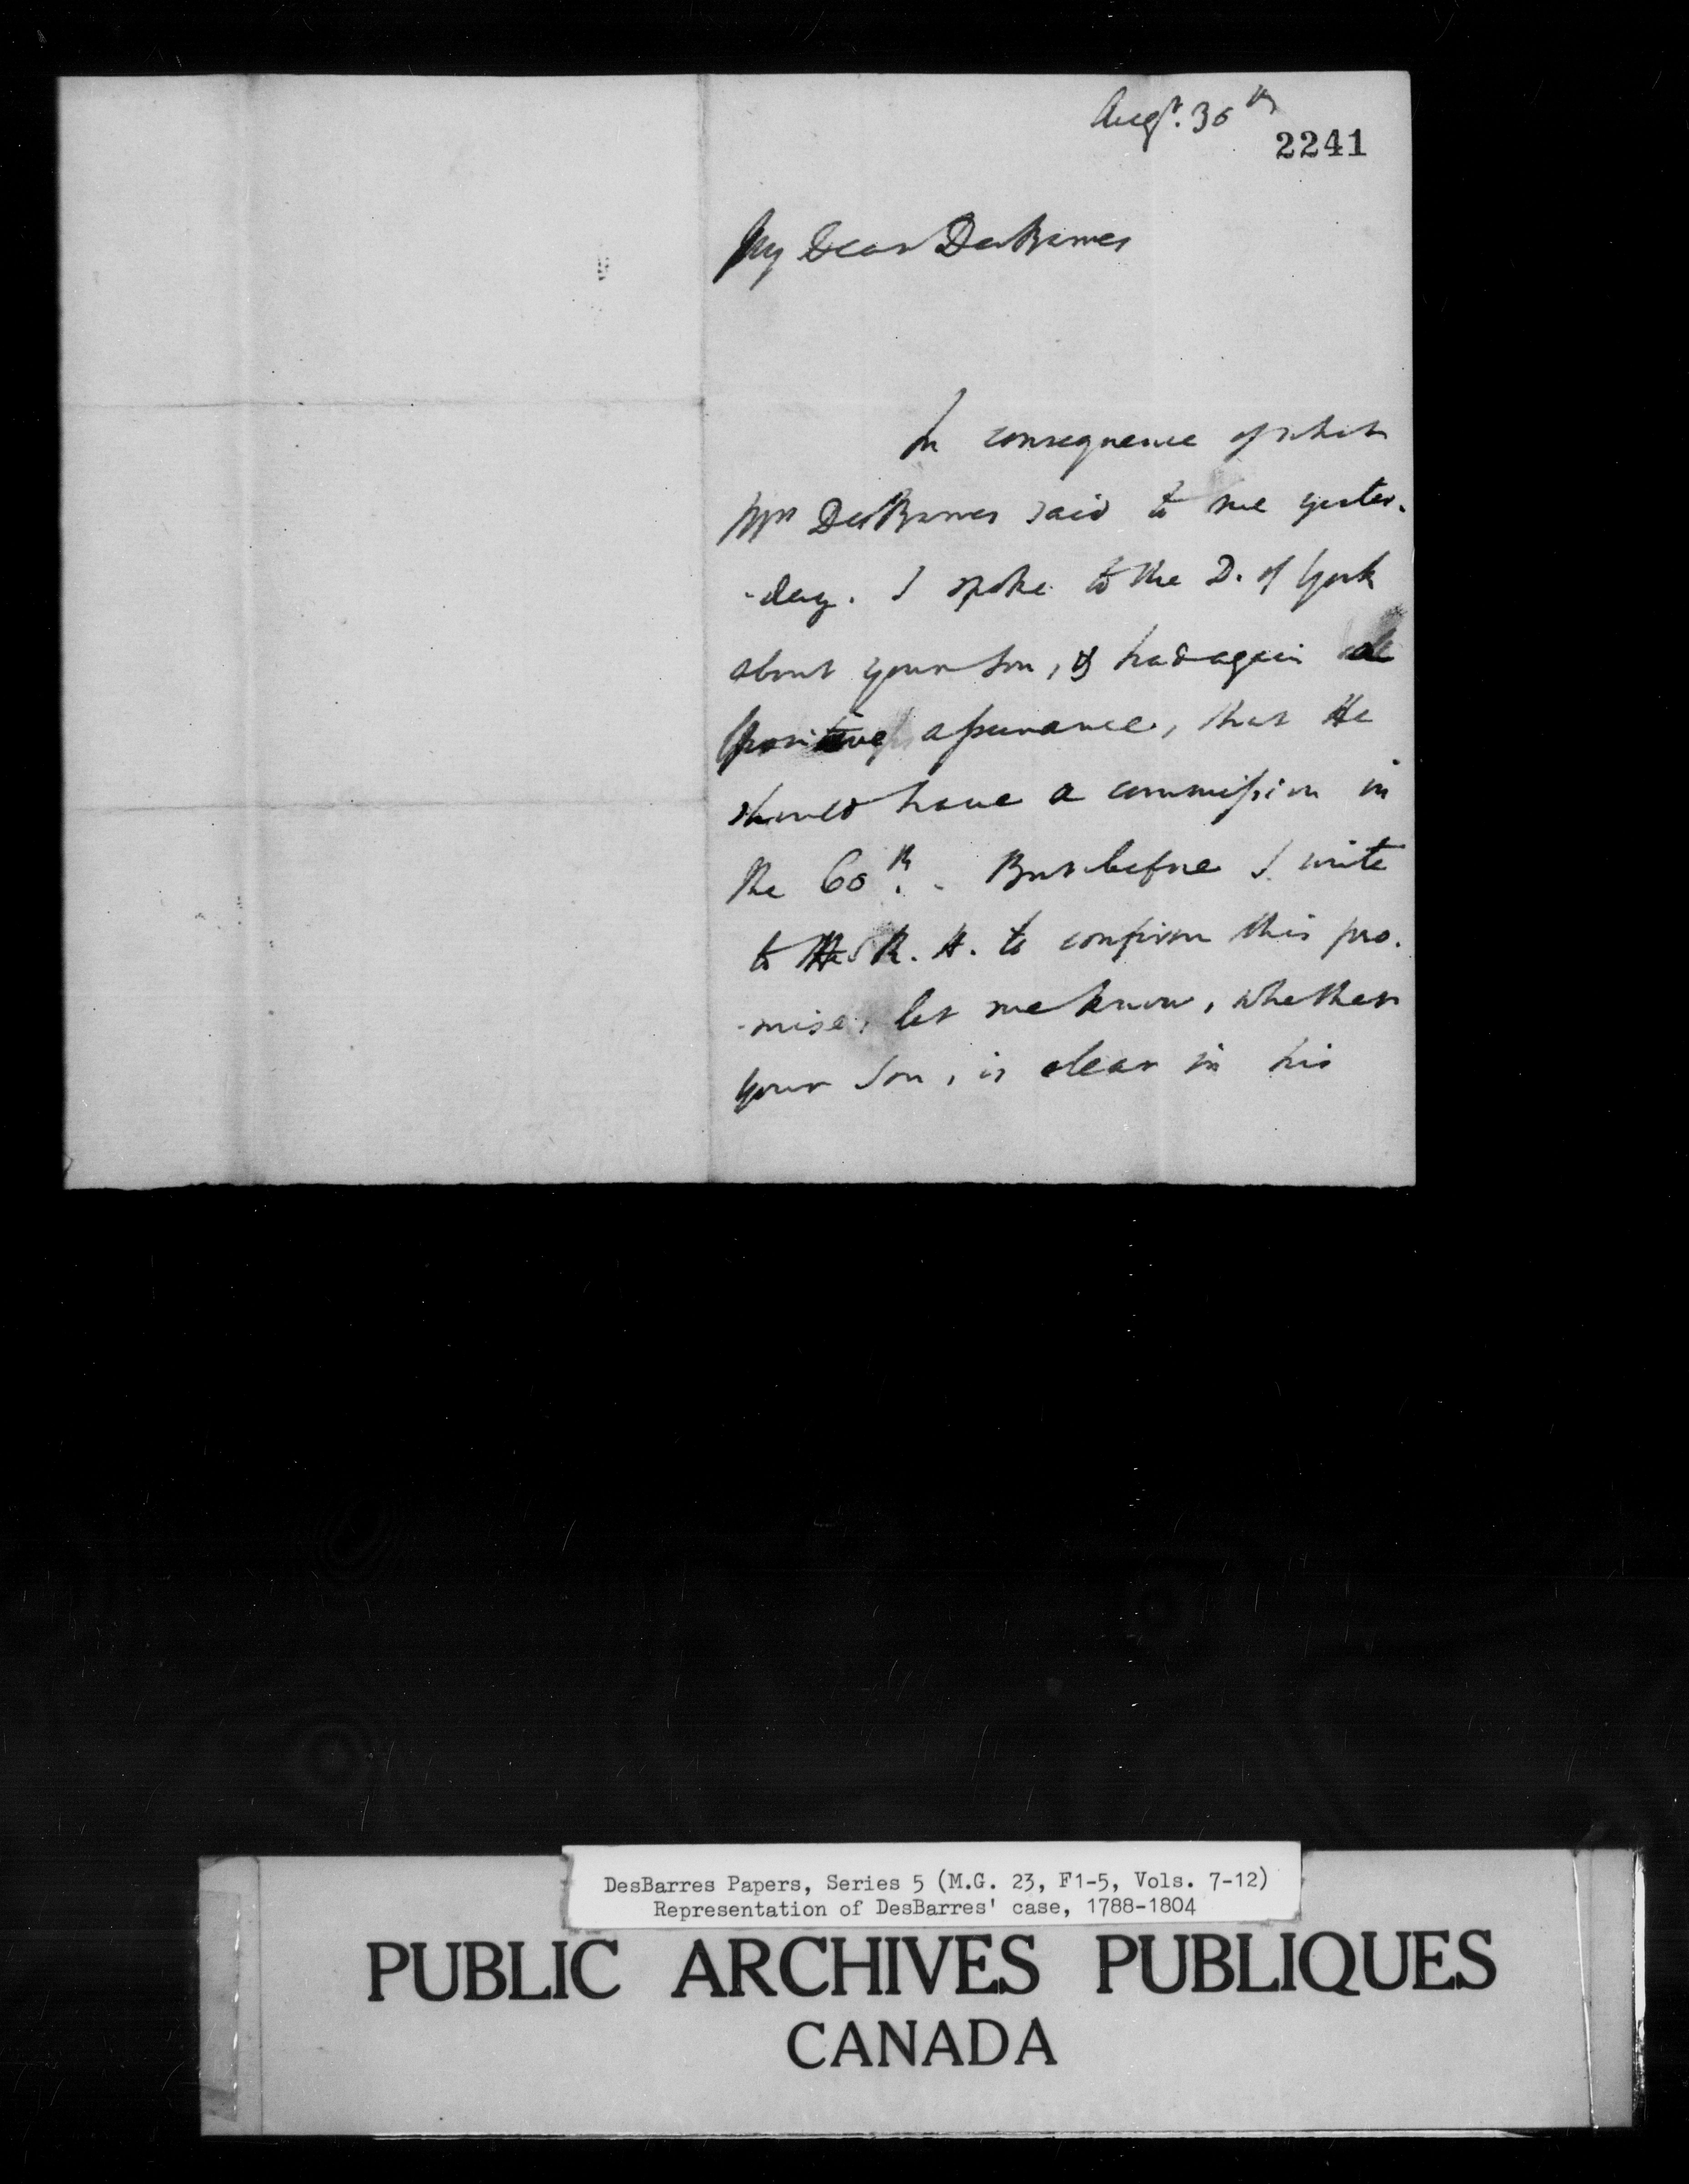 Augt. 30th
2241
My Dear DesBarres
In consequence of what
Mrs DesBarres said to me yester-
-day. I spoke to the D. of York
about your son, & had again a
positive assurance, that He
should have a commission in
the 60th. But before I write
to H. R. H. to confirm this pro-
-mise, let me know, whether
your Son, is clear in his
DesBarres Papers, Series 5 (M.G. 23, F1-5, Vols. 7-12)
Representation of DesBarres' case, 1788-1804
PUBLIC ARCHIVES PUBLIQUES
CANADA